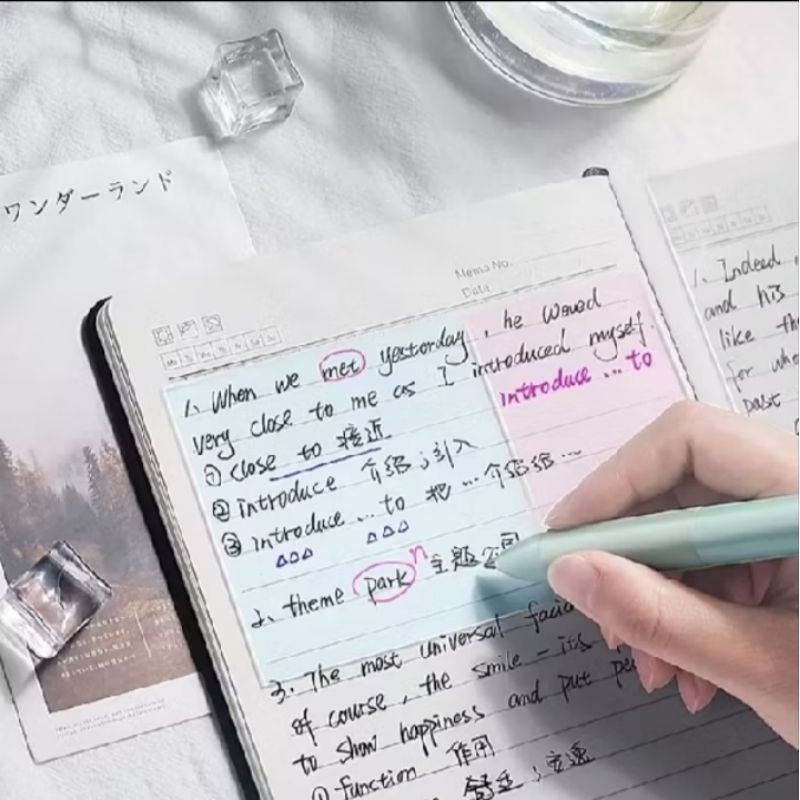 ワンダーランド
Memo No.
Date
Mo Tu We Th Fr Sa Su
1、When we met yesterday, he woved
very close to me as I introduced myself.
introduce ... to
① close to 接近
② introduce 介绍；引入
③ introduce ... to 把 ... 介绍给 ...
n
2、theme park 主题公园
3. The most universal facia
of course, the smile - its
to show happiness and put pe
① function 作用
1、Indeed,
and his
like th
for who
past